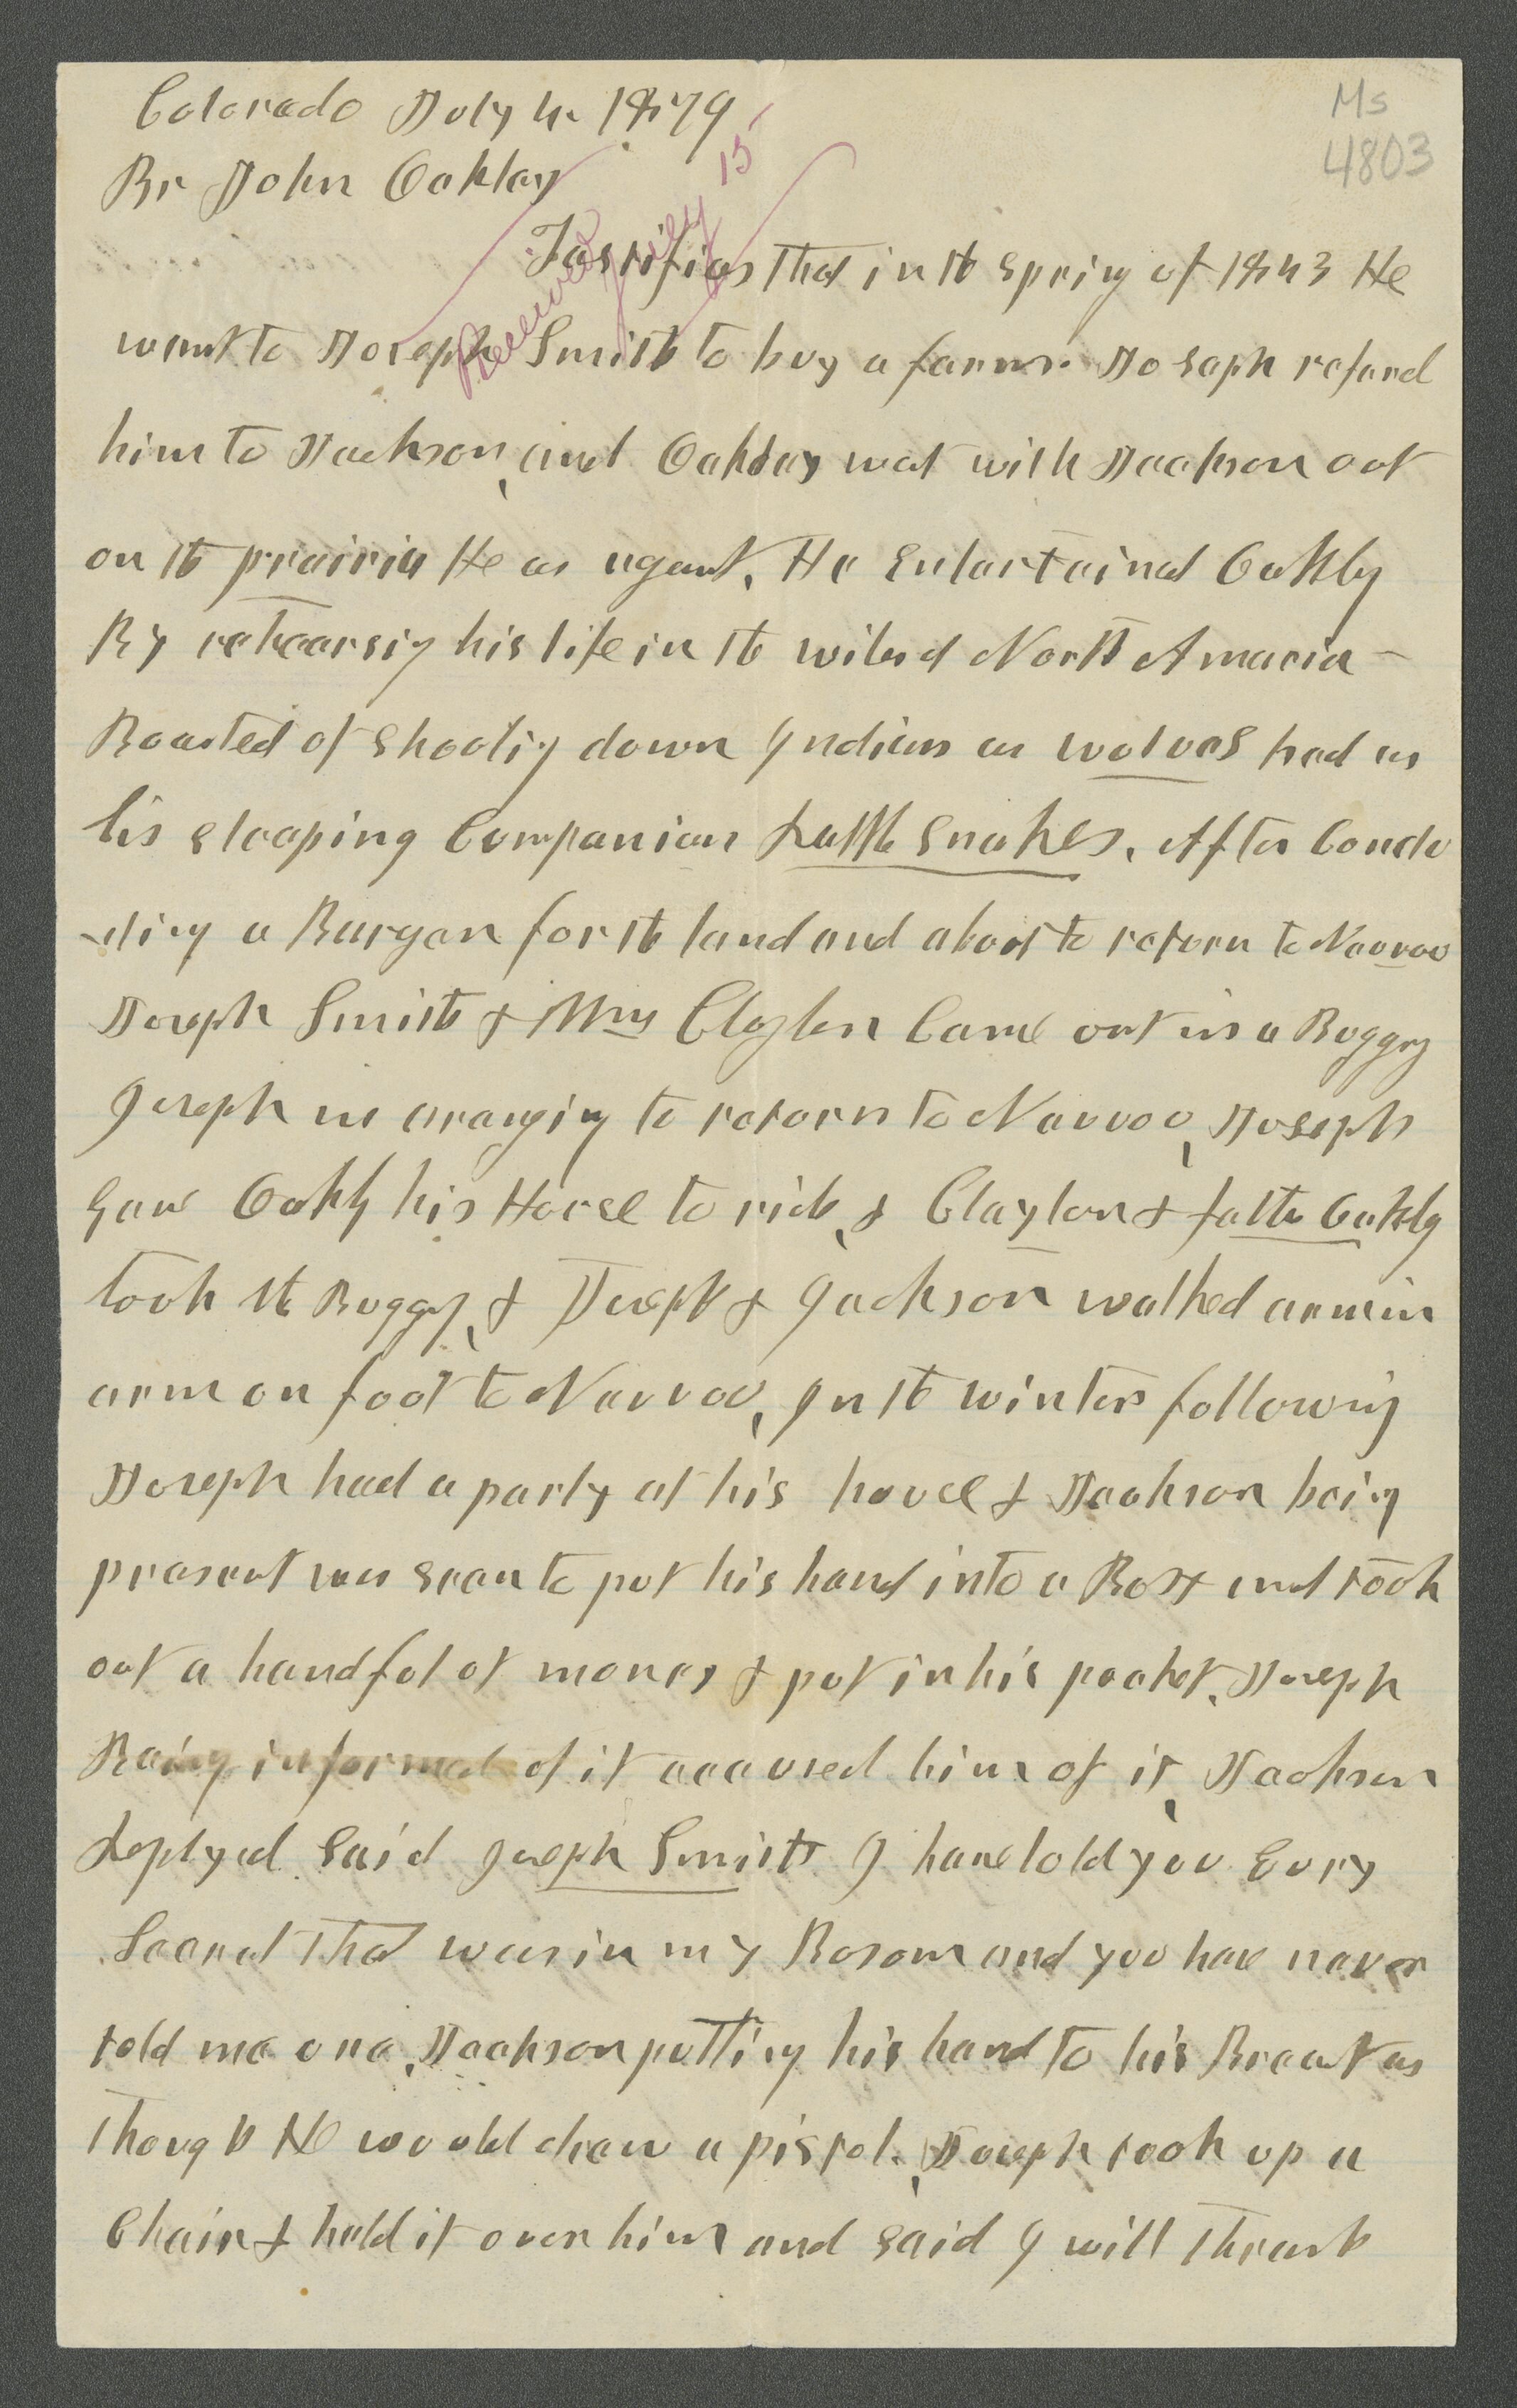 Colorado July 4. 1879
Ms
4803
Br John Oakley
Received July 15
Testifies That in th spring of 1843 He
went to Joseph Smith to buy a farm. Joseph referd
him to Jackson, and Oakley wet with Jackson out
on th prairie He as agent. He Entertained Oakly
By rehearsig his life in th wiled North America -
Boasted of shootig down Indians as wolves had as
his sleeping Companions Rattle Snakes. After Conclu
-ding a Bargan for th land and about to return to Nauvoo
Joseph Smith & Wm Clayton Came out in a Buggy
Joseph in aranging to return to Nauvoo, Joseph
gave Oakly his Horse to ride, & Clayton & fathe Oakly
took th Buggy, & Joseph & Jackson walked arm in
arm on foot to Nauvoo, In th winter followig
Joseph had a party at his house & Jackson being
present was sean to put his hand into a Box and took
out a handful of money & put in his pocket. Joseph
Being informed of it accused him of it, Jackson
Replyed Said Joseph Smith I have told you Every
Secret That was in my Bosom and you have never
told me one, Jackson putting his hand to his Breast as
Though He would draw a pistol. Joseph took up a
Chair & held it over him and said I will Thrash